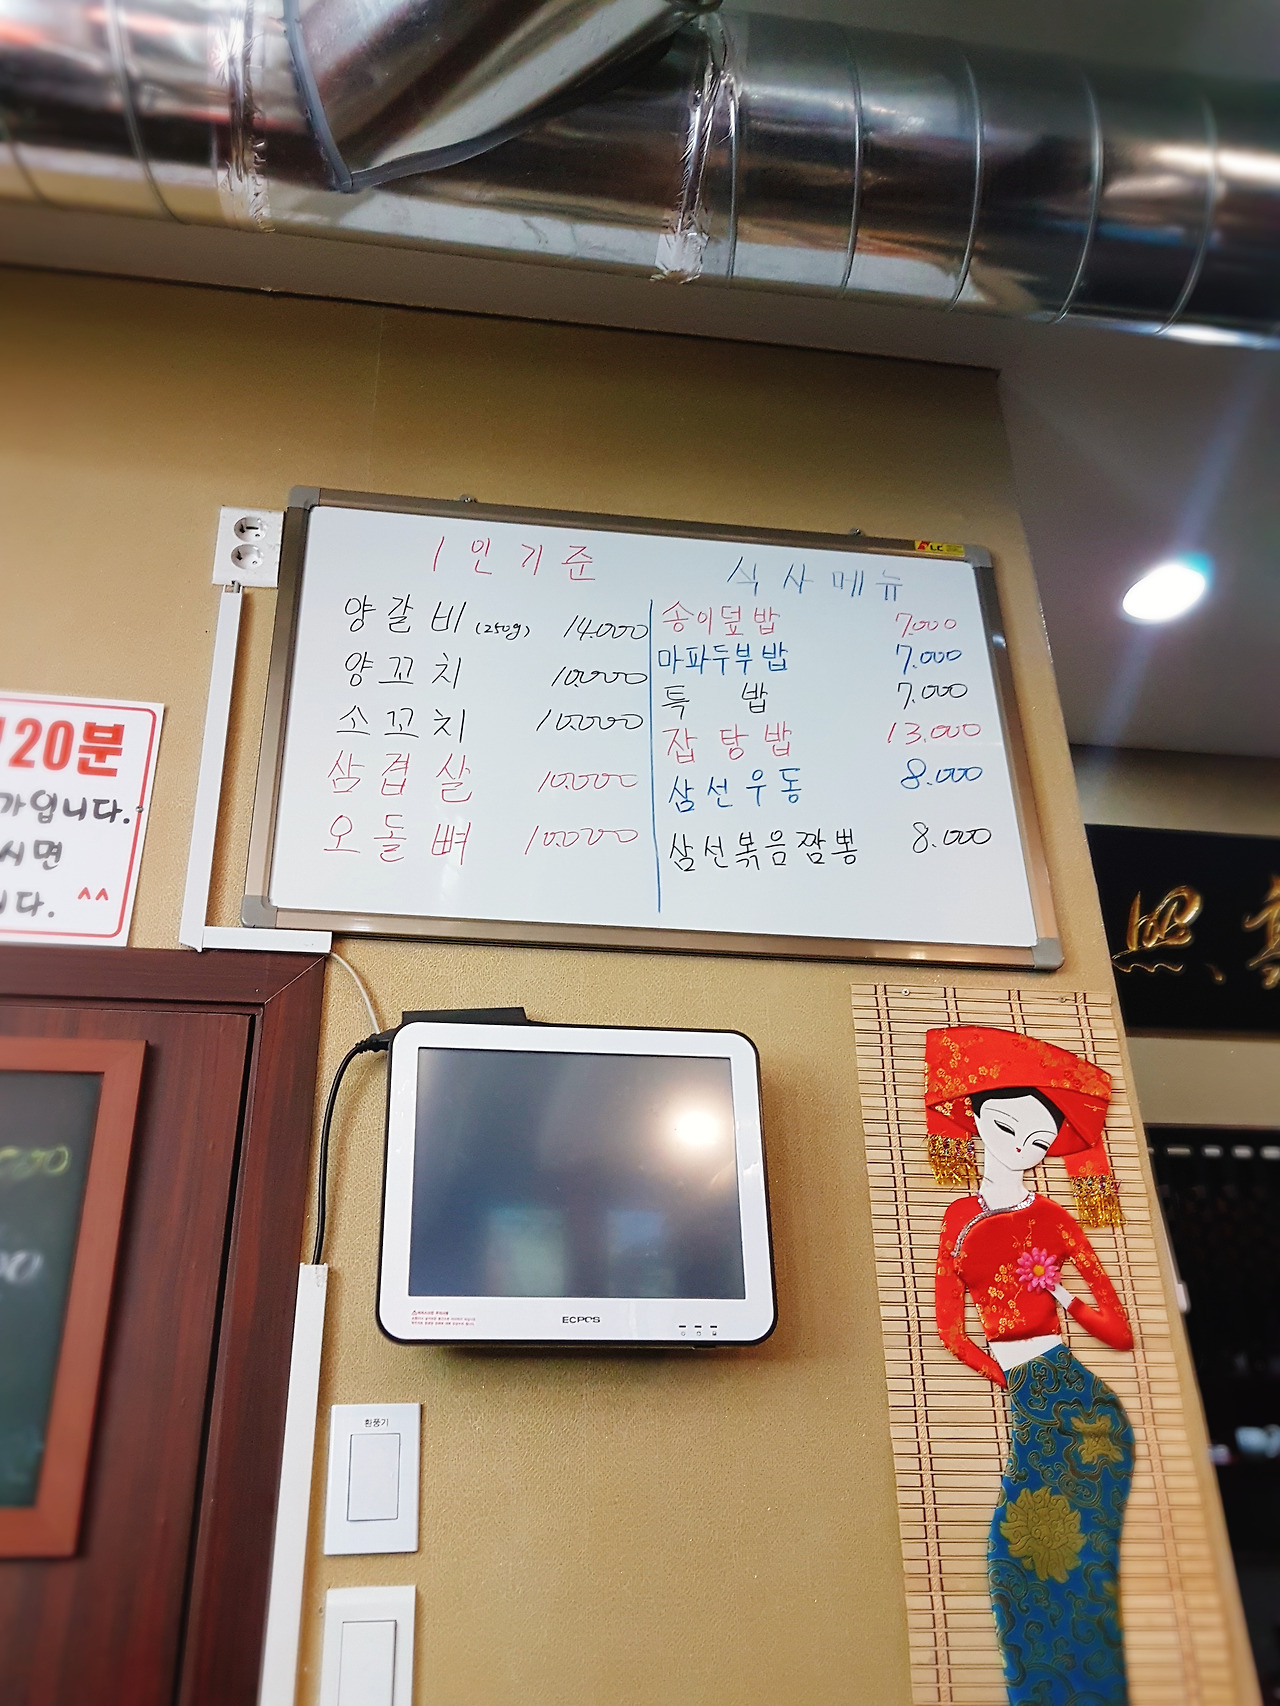 1인기준
양갈비 (250g) 14.000
양꼬치 10.000
소꼬치 10.000
삼겹살 10.000
오돌뼈 10.000
식사메뉴
송이덮밥 7.000
마파두부밥 7.000
특밥 7.000
잡탕밥 13.000
삼선우동 8.000
삼선볶음짬뽕 8.000
120분
가입니다.
시면
다. ^^
照
ECPOS
환풍기